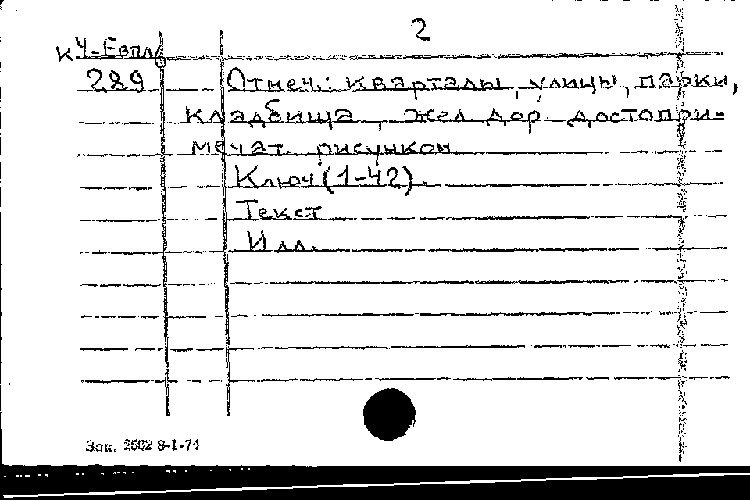 2
К 4-Евпл
289 Отмеч.: кварталы, улицы, парки,
кладбища, жел. дор. достопри-
мечат. рисунком
Ключ (1-42).
Текст
Илл.
Зак. 2602 8-I-74